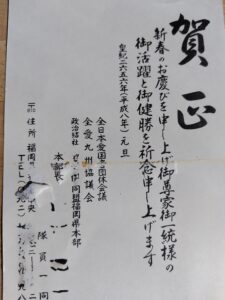 賀正
新春のお慶びを申し上げ御尊家御一統様の
御活躍と御健勝を祈念申し上げます
皇紀二六五六年(平成八年)元旦
全日本愛国者団体会議
全愛九州協議会
政治結社 同盟福岡県本部
本部長
隊員一同
住所 福岡 中央
TEL(〇九二)